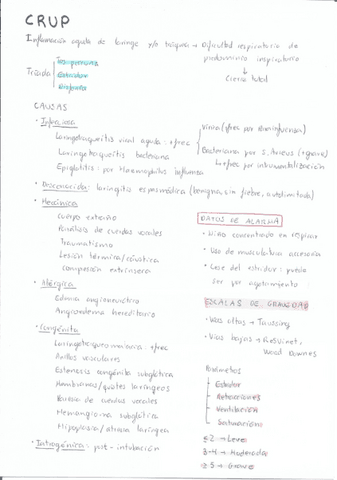 CRUP
Inflamación aguda de laringe y/o tráquea → dificultad respiratoria de
predominio inspiratorio
↓
cierre total
Triada
Estridor
Disfonía
CAUSAS
• Infecciosa
Laringotraqueítis viral aguda: +frec
Laringotraqueítis bacteriana
Epiglotitis: por Haemophilus influenza
Bacteriana por S. Aureus (+grave)
• Desconocida: laringitis espasmódica (benigna, sin fiebre, autolimitada)
• Mecánica
Cuerpo extraño
Parálisis de cuerdas vocales
Traumatismo
Lesión térmica/cáustica
Compresión extrínseca
• Alérgica
Edema angioneurótico
Angioedema hereditario
• Congénita
Laringotraqueomalacia: +frec
Anillos vasculares
Estenosis congénita subglótica
Membranas/quistes laríngeos
Paresia de cuerdas vocales
Hemangioma subglótico
Hipoplasia/atresia laríngea
• Iatrogénica: post-intubación
DATOS DE ALARMA
• Niño concentrado en respirar
• Uso de musculatura accesoria
• Cese del estridor: puede
ser por agotamiento
ESCALAS DE GRAVEDAD
• Vías altas → Taussing
• Vías bajas →
Wood Downes
Parámetros
Estridor
Retracciones
Ventilación
Saturación
≤2 → Leve
3-4 → Moderada
≥5 → Grave